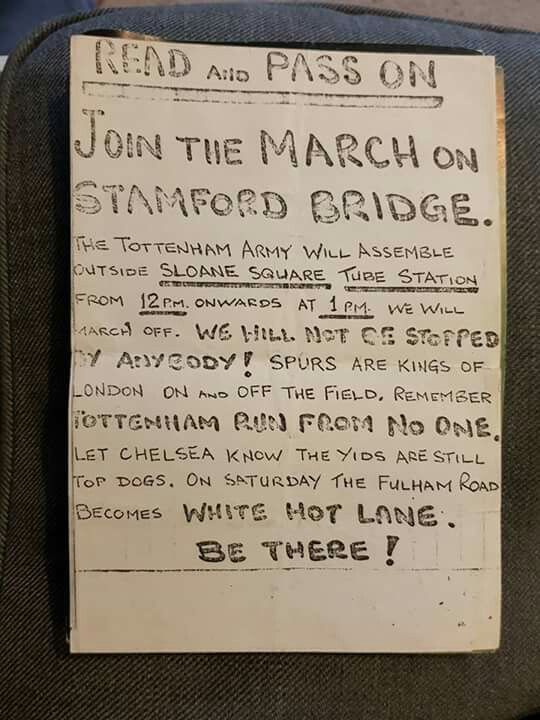 READ AND PASS ON
JOIN THE MARCH ON
STAMFORD BRIDGE.
THE TOTTENHAM ARMY WILL ASSEMBLE
OUTSIDE SLOANE SQUARE TUBE STATION
FROM 12 P.M. ONWARDS AT 1 PM. WE WILL
MARCH OFF. WE WILL NOT BE STOPPED
BY ANYBODY! SPURS ARE KINGS OF
LONDON ON AND OFF THE FIELD. REMEMBER
TOTTENHAM RUN FROM NO ONE.
LET CHELSEA KNOW THE YIDS ARE STILL
TOP DOGS. ON SATURDAY THE FULHAM ROAD
BECOMES WHITE HOT LANE.
BE THERE!